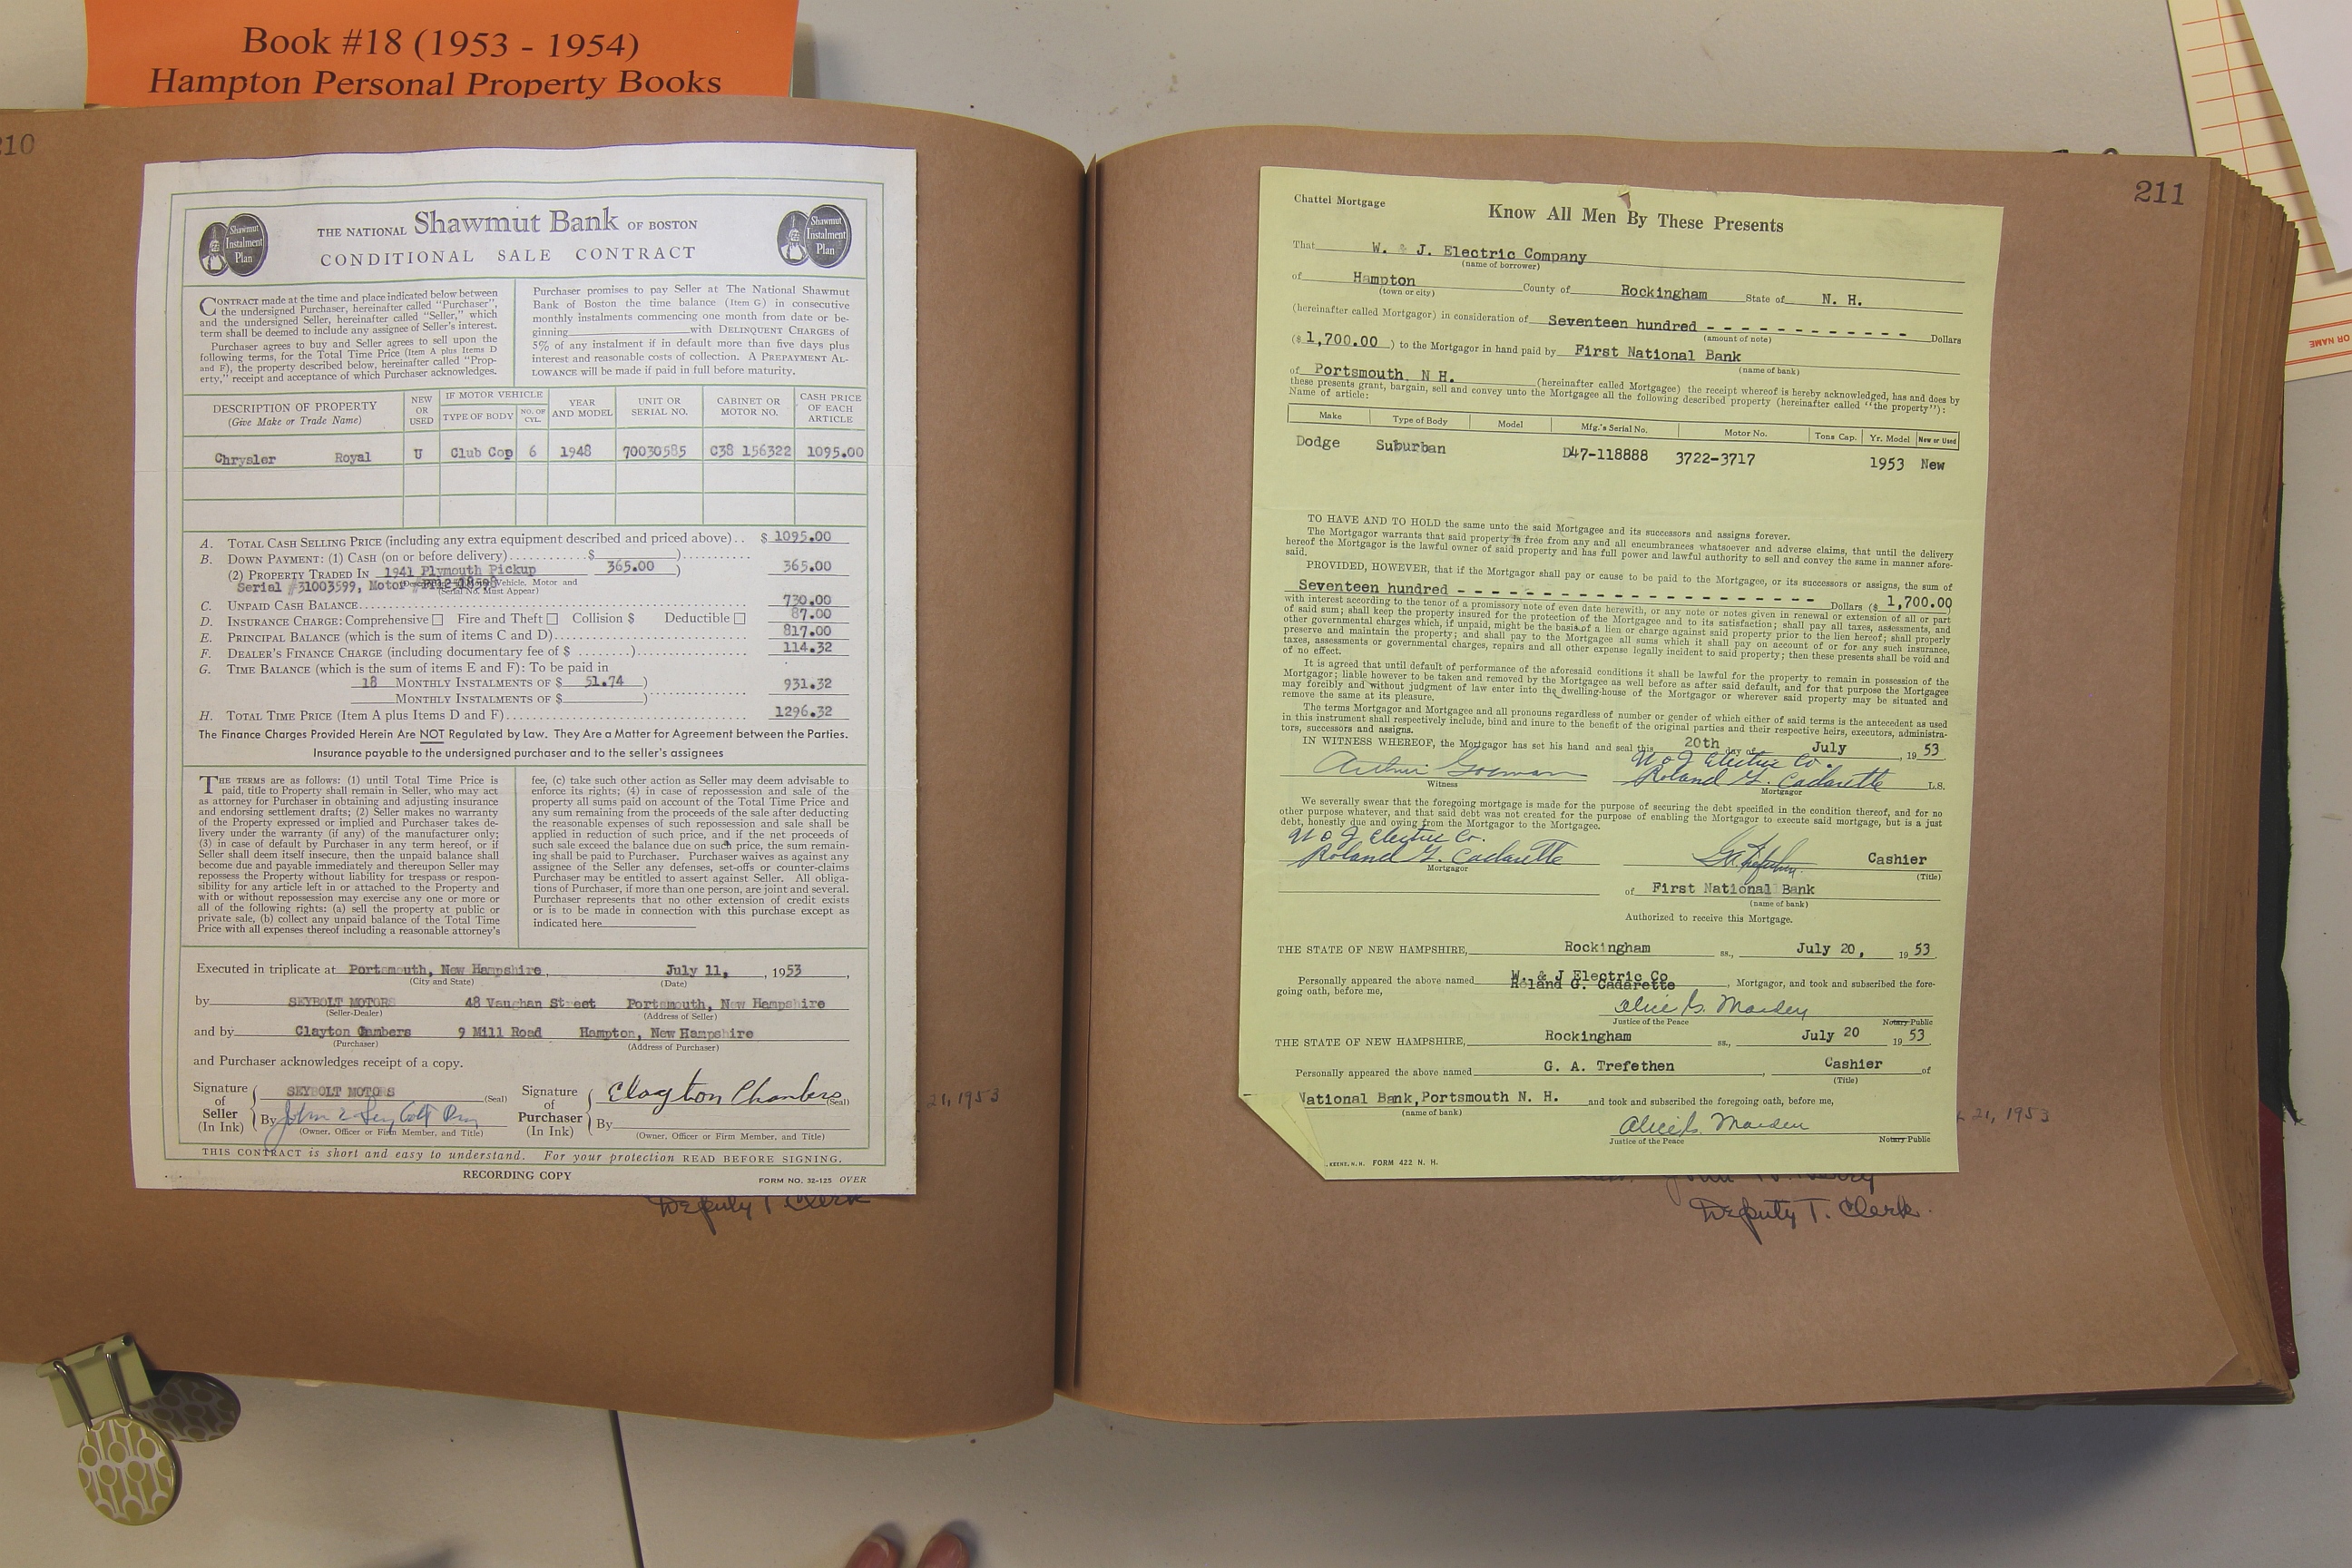 Book #18 (1953 - 1954)
Hampton Personal Property Books
210
Shawmut
Instalment
Plan
THE NATIONAL Shawmut Bank OF BOSTON
CONDITIONAL SALE CONTRACT
Shawmut
Instalment
Plan
CONTRACT made at the time and place indicated below between
the undersigned Purchaser, hereinafter called "Purchaser",
and the undersigned Seller, hereinafter called "Seller," which
term shall be deemed to include any assignee of Seller's interest.
Purchaser agrees to buy and Seller agrees to sell upon the
following terms, for the Total Time Price (Item A plus Items D
and F), the property described below, hereinafter called "Prop-
erty," receipt and acceptance of which Purchaser acknowledges.
Purchaser promises to pay Seller at The National Shawmut
Bank of Boston the time balance (Item G) in consecutive
monthly instalments commencing one month from date or be-
ginning with DELINQUENT CHARGES of
5% of any instalment if in default more than five days plus
interest and reasonable costs of collection. A PREPAYMENT AL-
LOWANCE will be made if paid in full before maturity.
DESCRIPTION OF PROPERTY
(Give Make or Trade Name)
NEW OR USED
IF MOTOR VEHICLE
TYPE OF BODY
NO. OF CYL.
YEAR AND MODEL
UNIT OR SERIAL NO.
CABINET OR MOTOR NO.
CASH PRICE OF EACH ARTICLE
Chrysler Royal U Club Cop 6 1948 70030585 C38 156322 1095.00
A. TOTAL CASH SELLING PRICE (including any extra equipment described and priced above).. $ 1095.00
B. DOWN PAYMENT: (1) CASH (on or before delivery)............$ )..........
(2) PROPERTY TRADED IN 1941 Plymouth Pickup 365.00 ) 365.00
Serial #31003599, Motor Vehicle. Motor and
(Serial No. Must Appear)
C. UNPAID CASH BALANCE 730.00
D. INSURANCE CHARGE: Comprehensive ☐ Fire and Theft ☐ Collision $ Deductible ☐ 87.00
E. PRINCIPAL BALANCE (which is the sum of items C and D) 817.00
F. DEALER'S FINANCE CHARGE (including documentary fee of $ ........) 114.32
G. TIME BALANCE (which is the sum of items E and F): To be paid in
18 MONTHLY INSTALMENTS OF $ 51.74 ) 931.32
MONTHLY INSTALMENTS OF $ )
H. TOTAL TIME PRICE (Item A plus Items D and F) 1296.32
The Finance Charges Provided Herein Are NOT Regulated by Law. They Are a Matter for Agreement between the Parties.
Insurance payable to the undersigned purchaser and to the seller's assignees
THE TERMS are as follows: (1) until Total Time Price is
paid, title to Property shall remain in Seller, who may act
as attorney for Purchaser in obtaining and adjusting insurance
and endorsing settlement drafts; (2) Seller makes no warranty
of the Property expressed or implied and Purchaser takes de-
livery under the warranty (if any) of the manufacturer only;
(3) in case of default by Purchaser in any term hereof, or if
Seller shall deem itself insecure, then the unpaid balance shall
become due and payable immediately and thereupon Seller may
repossess the Property without liability for trespass or respon-
sibility for any article left in or attached to the Property and
with or without repossession may exercise any one or more or
all of the following rights: (a) sell the property at public or
private sale, (b) collect any unpaid balance of the Total Time
Price with all expenses thereof including a reasonable attorney's
fee, (c) take such other action as Seller may deem advisable to
enforce its rights; (4) in case of repossession and sale of the
property all sums paid on account of the Total Time Price and
any sum remaining from the proceeds of the sale after deducting
the reasonable expenses of such repossession and sale shall be
applied in reduction of such price, and if the net proceeds of
such sale exceed the balance due on such price, the sum remain-
ing shall be paid to Purchaser. Purchaser waives as against any
assignee of the Seller any defenses, set-offs or counter-claims
Purchaser may be entitled to assert against Seller. All obliga-
tions of Purchaser, if more than one person, are joint and several.
Purchaser represents that no other extension of credit exists
or is to be made in connection with this purchase except as
indicated here
Executed in triplicate at Portsmouth, New Hampshire, July 11, , 1953,
(City and State) (Date)
by SEYBOLT MOTORS 48 Vaughan Street Portsmouth, New Hampshire
(Seller-Dealer) (Address of Seller)
and by Clayton Cambers 9 Mill Road Hampton, New Hampshire
(Purchaser) (Address of Purchaser)
and Purchaser acknowledges receipt of a copy.
Signature of Seller (In Ink)
SEYBOLT MOTORS (Seal)
By John
(Owner, Officer or Firm Member, and Title)
Signature of Purchaser (In Ink)
Clayton Chambers (Seal)
By
(Owner, Officer or Firm Member, and Title)
THIS CONTRACT is short and easy to understand. For your protection READ BEFORE SIGNING.
RECORDING COPY
FORM NO. 32-125 OVER
21, 1953
Deputy T Clerk
211
Chattel Mortgage
Know All Men By These Presents
That W. & J. Electric Company
(name of borrower)
of Hampton County of Rockingham State of N. H.
(town or city)
(hereinafter called Mortgagor) in consideration of Seventeen hundred - - - - - - - - - - - - Dollars
(amount of note)
($ 1,700.00 ) to the Mortgagor in hand paid by First National Bank
(name of bank)
of Portsmouth, N H. (hereinafter called Mortgagee) the receipt whereof is hereby acknowledged, has and does by
these presents grant, bargain, sell and convey unto the Mortgagee all the following described property (hereinafter called "the property"):
Name of article:
Make Type of Body Model Mfg.'s Serial No. Motor No. Tons Cap. Yr. Model New or Used
Dodge Suburban D47-118888 3722-3717 1953 New
TO HAVE AND TO HOLD the same unto the said Mortgagee and its successors and assigns forever.
The Mortgagor warrants that said property is free from any and all encumbrances whatsoever and adverse claims, that until the delivery
hereof the Mortgagor is the lawful owner of said property and has full power and lawful authority to sell and convey the same in manner afore-
said.
PROVIDED, HOWEVER, that if the Mortgagor shall pay or cause to be paid to the Mortgagee, or its successors or assigns, the sum of
Seventeen hundred - - - - - - - - - - - - - - - - - - - Dollars ($ 1,700.00
with interest according to the tenor of a promissory note of even date herewith, or any note or notes given in renewal or extension of all or part
of said sum; shall keep the property insured for the protection of the Mortgagee and to its satisfaction; shall pay all taxes, assessments, and
other governmental charges which, if unpaid, might be the basis of a lien or charge against said property prior to the lien hereof; shall properly
preserve and maintain the property; and shall pay to the Mortgagee all sums which it shall pay on account of or for any such insurance,
taxes, assessments or governmental charges, repairs and all other expense legally incident to said property; then these presents shall be void and
of no effect.
It is agreed that until default of performance of the aforesaid conditions it shall be lawful for the property to remain in possession of the
Mortgagor; liable however to be taken and removed by the Mortgagee as well before as after said default, and for that purpose the Mortgagee
may forcibly and without judgment of law enter into the dwelling-house of the Mortgagor or wherever said property may be situated and
remove the same at its pleasure.
The terms Mortgagor and Mortgagee and all pronouns regardless of number or gender of which either of said terms is the antecedent as used
in this instrument shall respectively include, bind and inure to the benefit of the original parties and their respective heirs, executors, administra-
tors, successors and assigns.
IN WITNESS WHEREOF, the Mortgagor has set his hand and seal this 20th day of July , 19 53.
W & J Electric Co.
Arthur Roland G. Cadarette L.S.
Witness Mortgagor
We severally swear that the foregoing mortgage is made for the purpose of securing the debt specified in the condition thereof, and for no
other purpose whatever, and that said debt was not created for the purpose of enabling the Mortgagor to execute said mortgage, but is a just
debt, honestly due and owing from the Mortgagor to the Mortgagee.
W & J Electric Co.
Roland G. Cadarette G A Trefethen Cashier
Mortgagor (Title)
of First National Bank
(name of bank)
Authorized to receive this Mortgage.
THE STATE OF NEW HAMPSHIRE, Rockingham ss., July 20, 19 53
Personally appeared the above named W. & J Electric Co Roland G. Cadarette , Mortgagor, and took and subscribed the fore-
going oath, before me,
Alice G. Marden
Justice of the Peace Notary Public
THE STATE OF NEW HAMPSHIRE, Rockingham ss., July 20 19 53
Personally appeared the above named G. A. Trefethen , Cashier of
(Title)
National Bank, Portsmouth N. H. and took and subscribed the foregoing oath, before me,
(name of bank)
Alice G. Marden
Justice of the Peace Notary Public
, KEENE, N. H. FORM 422 N. H.
21, 1953
Deputy T. Clerk.
OR NAME